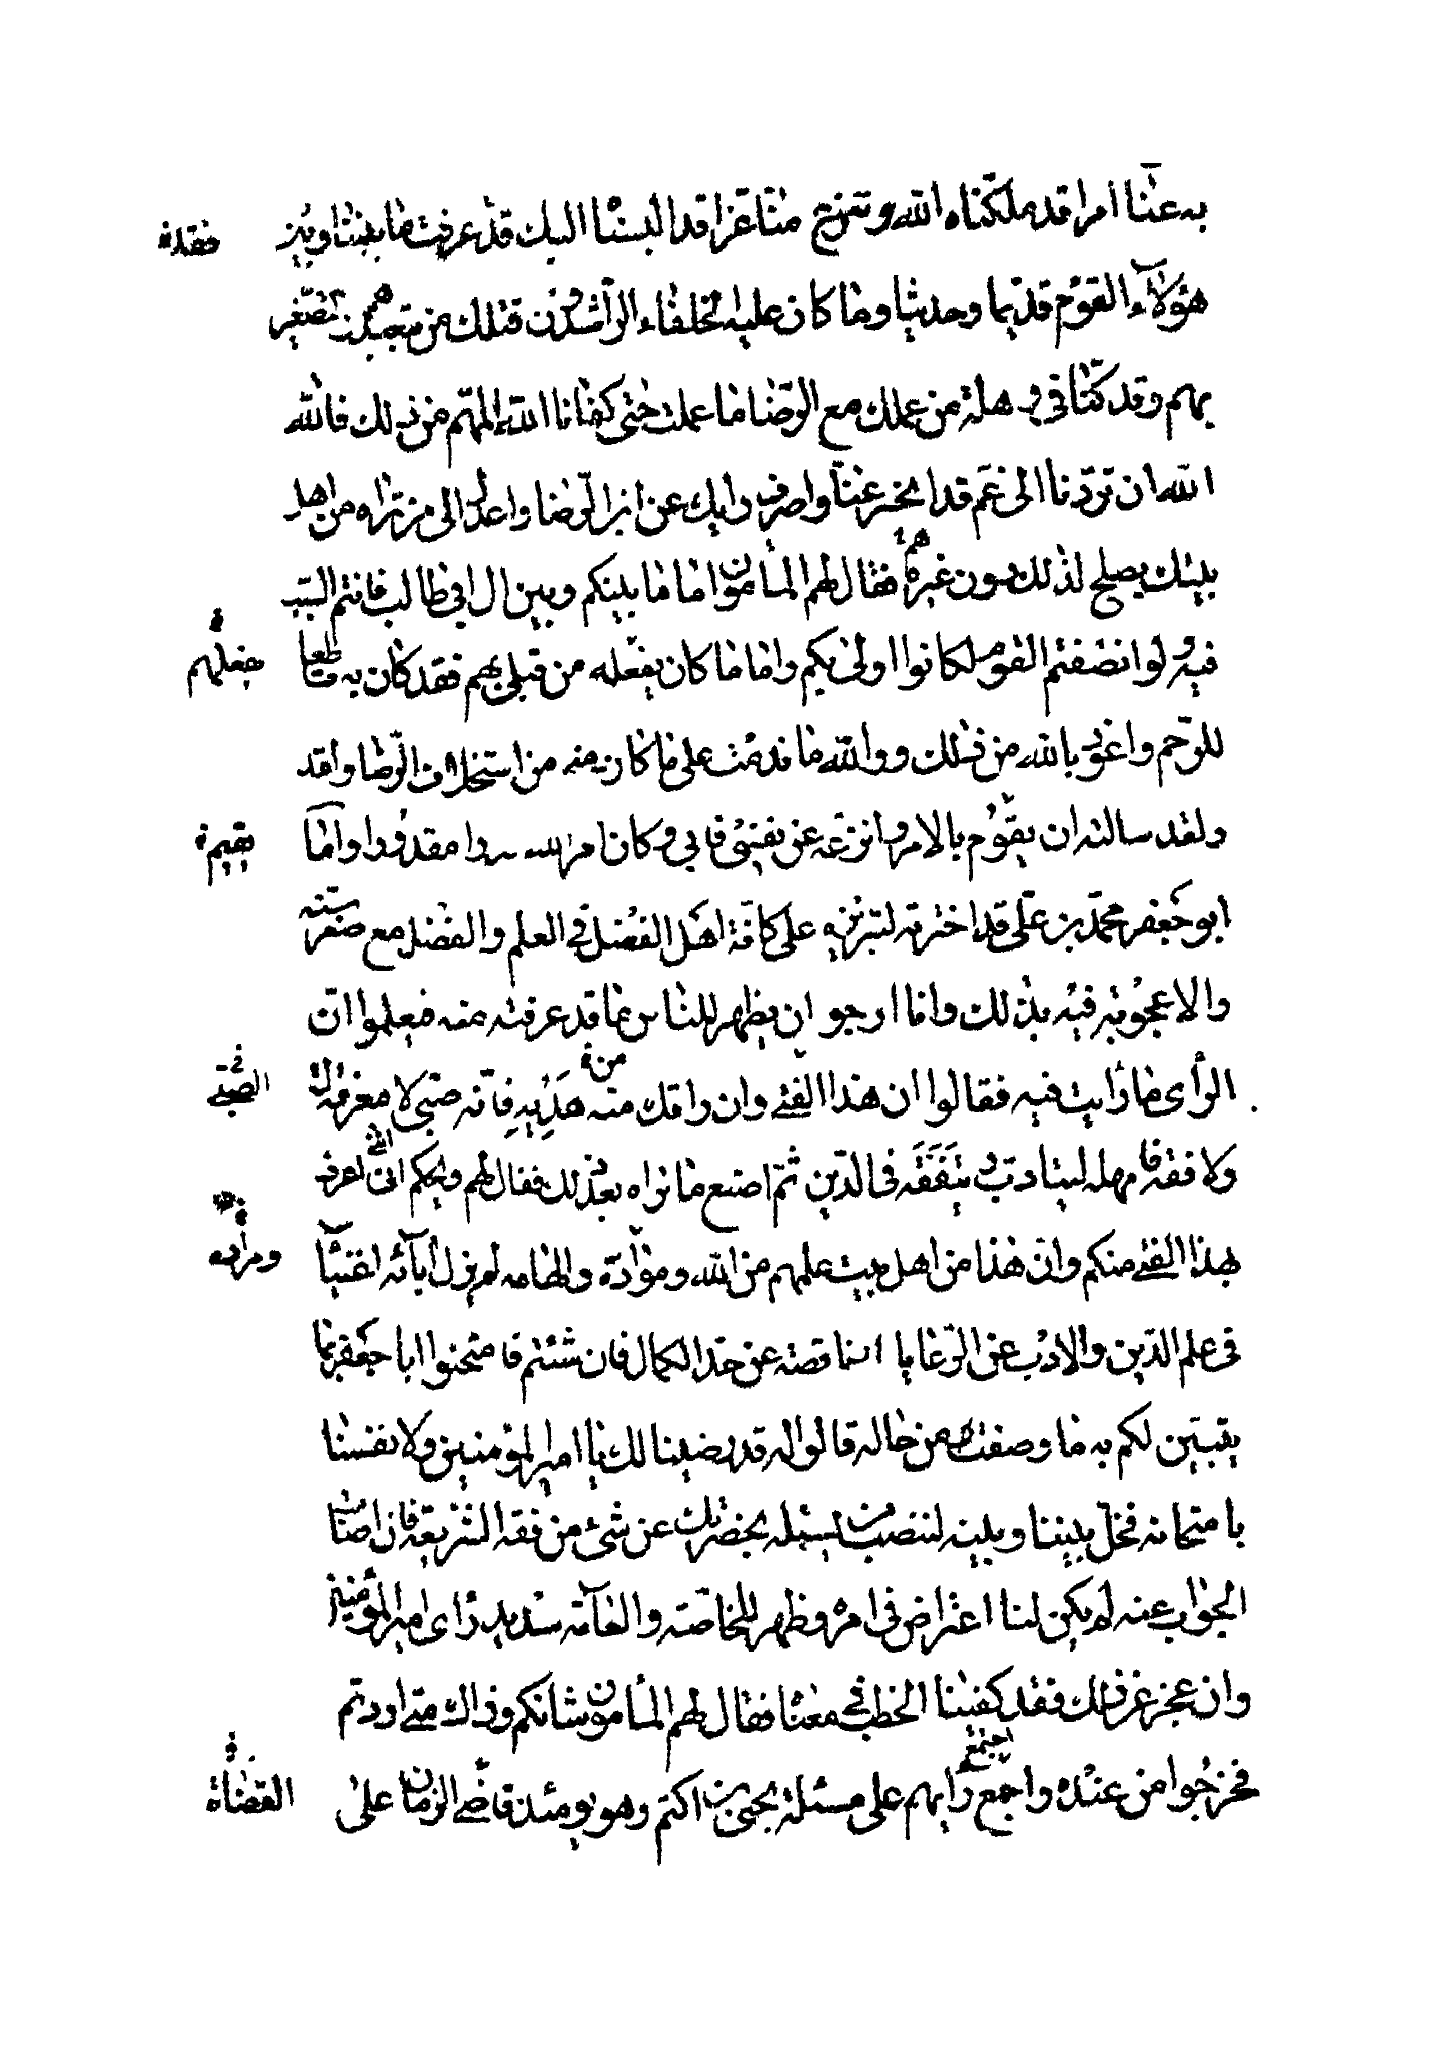 به عنّا امرا قد ملكناه الله وتنزع منّا عزّا قد البسناه اليك قد عرفت ما بيننا وبين
فقد نه
هؤلآء القوم قديما وحديثا وما كان عليه الخلفاء الرّاشدون قبلك من تبعيدهم وتصغير
بهم وقد كنّا في وهلة من عملك مع الرّضا ما عملت حتى كفانا الله المهمّ من ذلك فالله
الله ان تردّنا الى غمّ قد انحسر عنّا واصرف رايك عن ابن الرّضا واعدل الى من تراه من اهل
بيتك يصلح لذلك دون غيرهم فقال لهم المأمون اما ما بينكم وبين ال ابي طالب فانتم السّبب
فيه ولو انصفتم القوم لكانوا اولى بكم واما ما كان يفعله من قبلي بهم فقد كان به قاطعا
للرّحم واعوذ بالله من ذلك ووالله ما ندمت على ما كان منى من استخلاف الرّضا ولقد
ولقد سالته ان يقوم بالامر وانزعه عن نفسى فابى وكان امر الله قدرا مقدورا وامّا
يقيم
ابو جعفر محمّد بن علّى قد اخترته لتبريزه على كافّة اهل الفضل في العلم والفضل مع صغر سنّه
والاعجوبة فيه بذلك وانا ارجو ان يظهر للنّاس ما قد عرفته منه فيعلموا انّ
الرأى ما رأيت فيه فقالوا ان هذا الفتى وان راقك منه هديه فانّه صبّى لا معرفة له
من
الصّبى
ولا فقه فامهله ليتادّب ويتفقّه في الدّين ثمّ اصنع ما تراه بعد ذلك فقال لهم ويحكم انّى اعرف
بهذا الفتى منكم وانّ هذا من اهل بيت علمهم من الله وموادّه والهامه لم يزل أبآئه اغنيآ
في علم الدّين والادب عن الرّعايا الناقصة عن حدّ الكمال فان شئتم فامتحنوا ابا جعفر بما
يتبيّن لكم به ما وصفت من حاله قالوا له قد رضينا لك يا امير المؤمنين ولانفسنا
بامتحانه فخلّ بيننا وبينه لننصب من يسئله بحضرتك عن شئ من فقه الشّريعة فان اصاب
الجواب عنه لم يكن لنا اعتراض في امره وظهر للخاصّة والعآمّة سديد رأى امير المؤمنين
وان عجز عن ذلك فقد كفينا الخطب في معناه فقال لهم المأمون شانكم وذاك متى اردتم
فخرجوا من عنده واجمع رأيهم على مسئلة يحيى بن اكثم وهو يومئذ قاضى الزمان على
اجتمع
القضاة